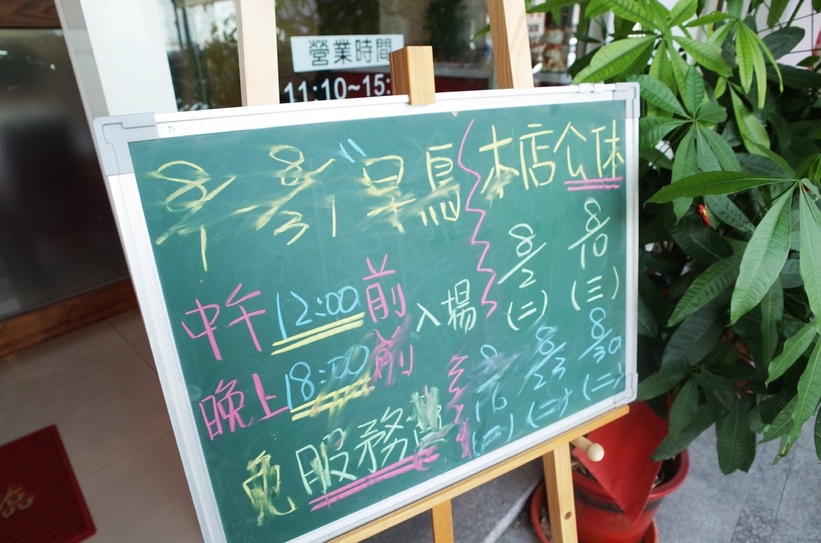 營業時間
11:10~15:
8/1 8/31 早鳥
中午12:00前
入場
晚上18:00前
免服務費
本店公休
8/2 (二)
8/10 (三)
8/16 (二)
8/23 (二)
8/30 (二)